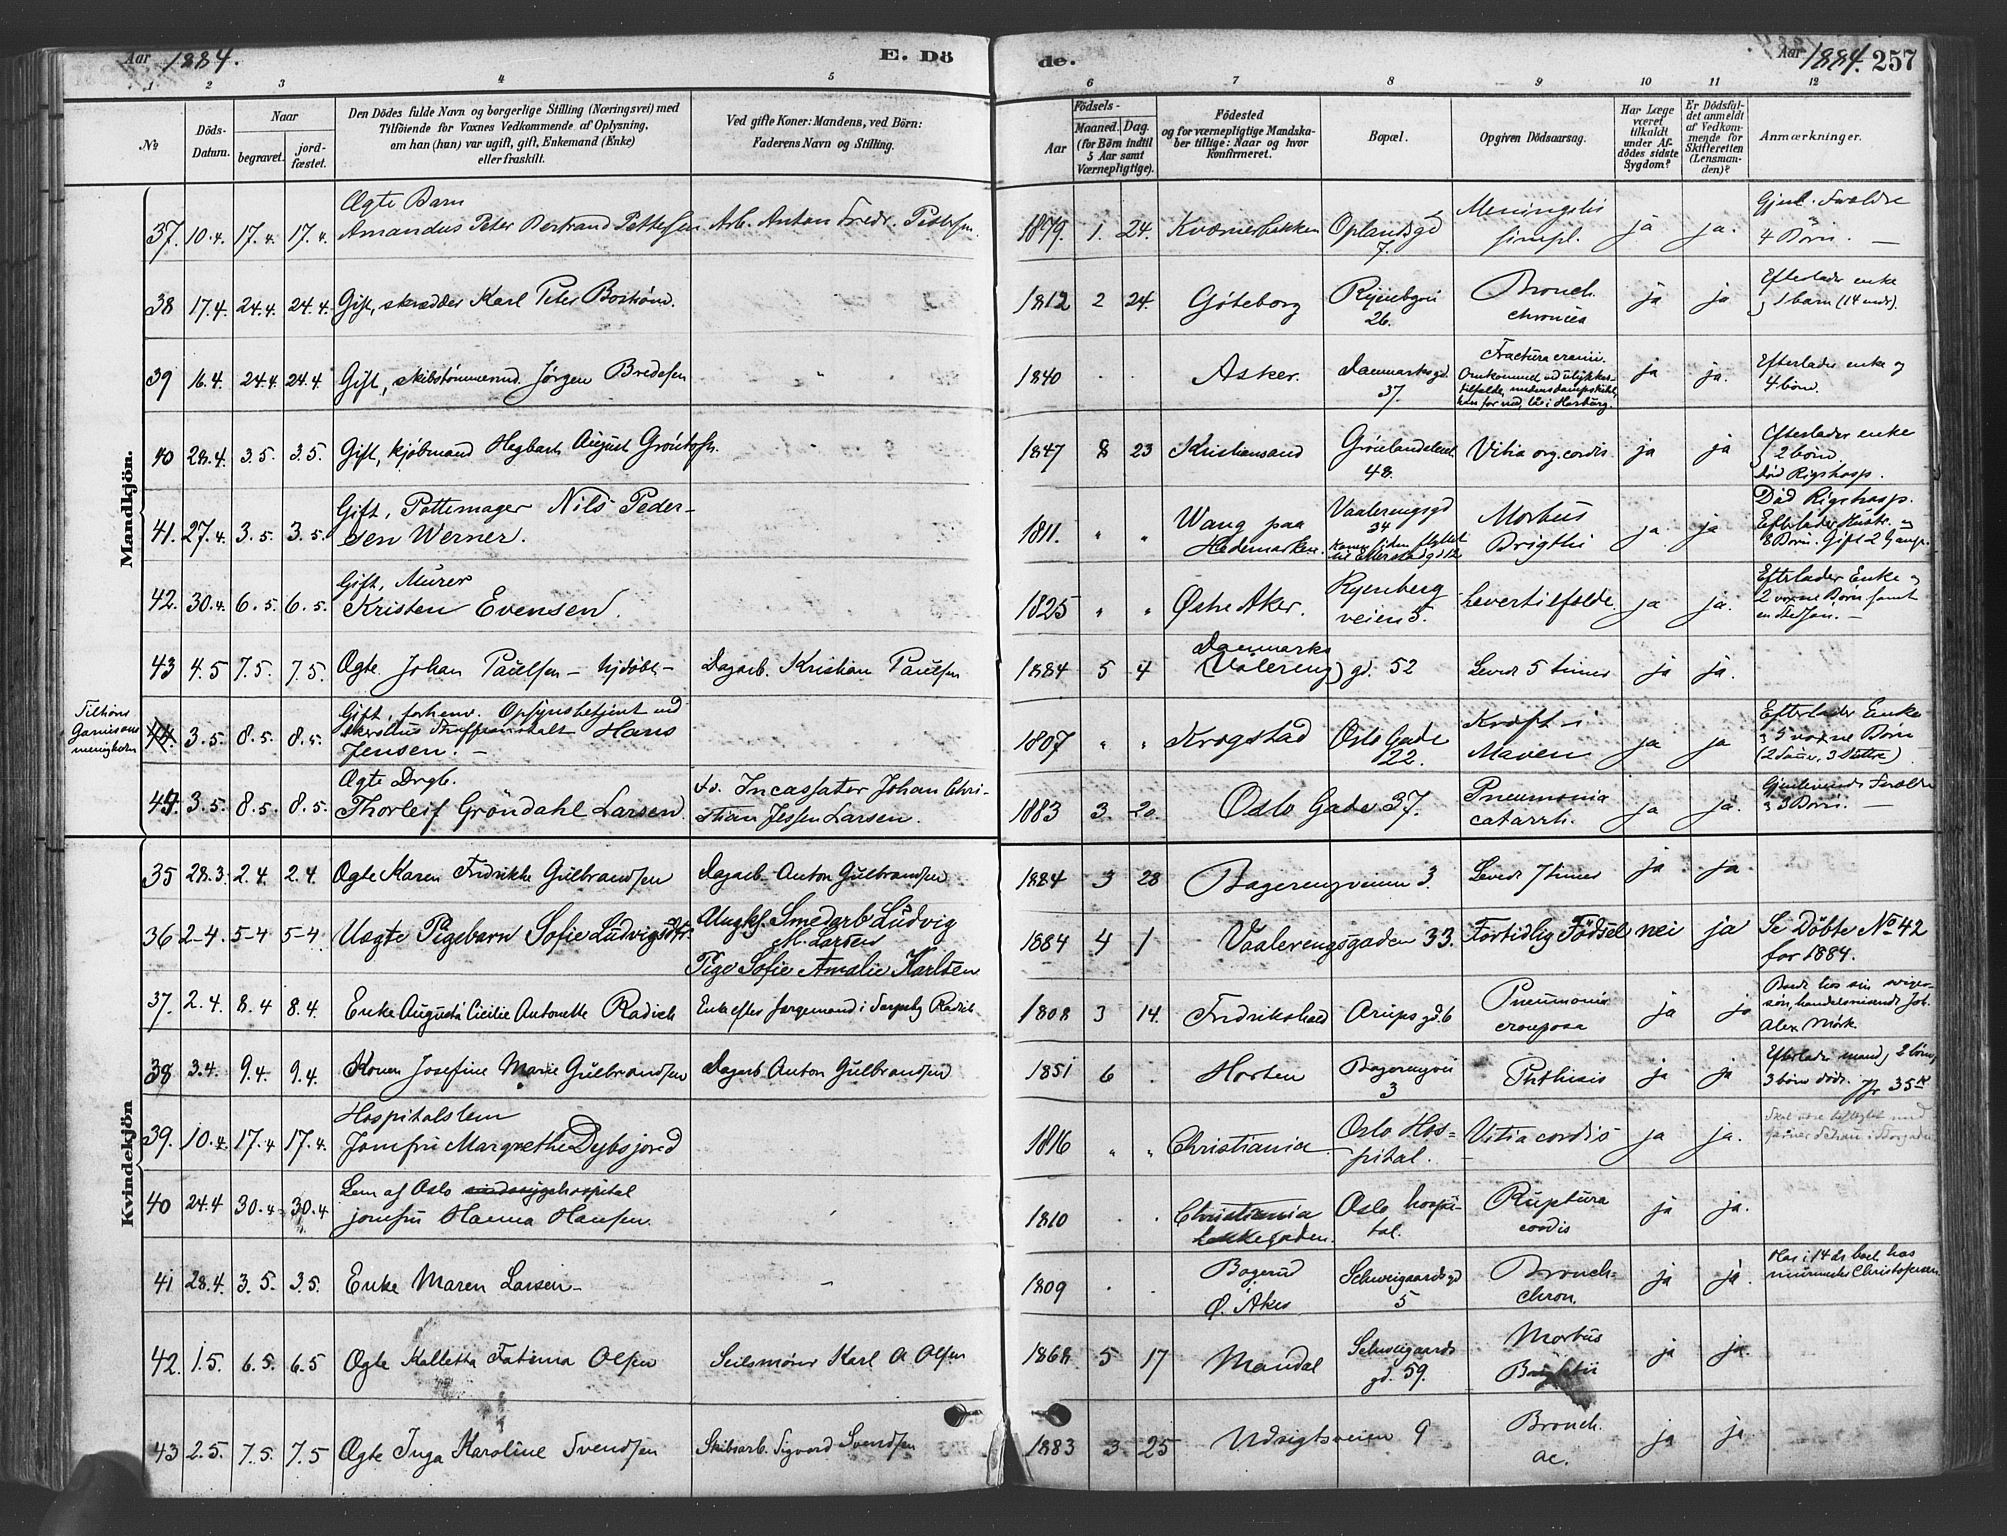 Aar 1884.
E. Dö
de.
Aar 1884. 257
1 2 3 4 5 6 7 8 9 10 11 12
No
Döds-Datum.
Naar
begravet.
jordfæstet.
Den Dödes fulde Navn og borgerlige Stilling (Næringsvei) med
Tilföiende for Voxnes Vedkommende af Oplysning,
om han (hun) var ugift, gift, Enkemand (Enke)
eller fraskilt.
Ved gifte Koner: Mandens, ved Börn:
Faderens Navn og Stilling.
Födsels-
Aar
Maaned. Dag.
(for Börn indtil
5 Aar samt
Værnepligtige).
Födested
og for værnepligtige Mandska-
ber tillige: Naar og hvor
konfirmeret.
Bopæl.
Opgiven Dödsaarsag.
Har Læge
været
tilkaldt
under Af-
dödes sidste
Sygdom?
Er Dödsfal-
det anmeldt
af Vedkom-
mende for
Skifteretten
(Lensman-
den)?
Anmærkninger.
Mandkjön.
37. 10.4. 17.4. 17.4. Ægte Barn
Amandus Peter Bertrand Pettersen Arb. Anton Fredr. Pettersen. 1879. 1. 24. Kværnerbakken Oplandsgd 7. Meningitis simpl. ja ja. Gjenl. Forældre 4 Börn. —
38 17.4. 24.4. 24.4. Gift, skrædder Karl Peter Boström. 1812 2 24. Göteborg Ryenbgvei 26. Bronch. chronica ja ja Efterlader enke 1 barn
39 16.4. 24.4. 24.4 Gift, skibstømmermd. Jörgen Bredesen 1840 . . Asker. Danmarksgd. 37. Fractura cranii. Omkommet ved ulykkes-tilfælde, ja ja. Efterlader enke og 4 börn.
40 28.4. 3.5. 3.5. Gift, kjöbmand Hagbart August Gröntoft. 1847 8 23 Kristiansand Grönlandsleret 48. Vitia org. cordis. ja ja Efterlader enke 2 börn. död Rigshosp.
41. 27.4. 3.5. 3.5. Gift, Pottemager Nils Peder-
sen Werner. 1811. " " Wang paa Hedemarken. Vaalerengsgd 34 Morbus Brigthi ja ja Död Rigshosp. Efterlader Hustr. og 8 Börn. Gift 2 Gange.
42. 30.4. 6.5. 6.5. Gift, Murer
Kristen Evensen. 1825 " " Østre Aker. Ryenberg veien 5. Levertilfælde. ja ja. Efterlader Enke og 2 voxne Börn samt en Stedsön. —
43 4.5 7.5. 7.5. Ægte Johan Paulsen — hjdöbt — Dagarb. Kristian Paulsen 1884 5 4 Danmarks (Vaalereng) gd. 52 Levede 5 timer ja ja
Tilhörer Garnisons menigheden
44. 3.5. 8.5. 8.5. Gift, forhenv. Opsynsbetjent ved
Akershus Strafanstalt Hans
Jensen. — 1807 " " Krogstad Oslo Gade 22. Kræft i Maven ja ja Efterlader Enke 5 voxne Börn (2 Sönner, 3 Döttre)
45. 3.5. 8.5. 8.5. Ægte Drgb.
Thorleif Gröndahl Larsen fv. Incassator Johan Chri-
stian Jessen Larsen. 1883 3. 20. Oslo Gade 37. Pneumonia catarrh. ja ja. Gjenlevende Forældre 3 Börn. —
Kvindekjön
35 28.3. 2.4. 2.4. Ægte Karen Fredrikke Gulbrandsen Dagarb. Anton Gulbrandsen 1884 3 28 Bagerengveien 3. Levede 7 timer ja ja.
36 2-4. 5-4 5-4 Uægte Pigebarn Sofie Ludvigsdtr. Ungkf. Smedarb Ludvig
M. Larsen
Pige Sofie Amalie Karlsen 1884 4 1 Vaalerengsgaden 33. Fortidlig Födsel nei ja Se Döbte No 42 for 1884.
37. 2.4. 8.4 8.4. Enke Augusta Cicilie Antonette Radich Enke efter Radich 1808 3 14. Fredrikshald Arups gd. 6 Pneumonia crouposa ja ja Boede hos sin svigersön, handelsreisende Joh. Alex. Mörk.
38 3.4. 9.4. 9.4. Konen Josefine Marie Gulbrandsen Dagarb Anton Gulbrandsen 1851 6 . Horten Bagerengvei 3 Phthisis ja ja Efterlader mand, 2 börn, 3 börn döde. Jfr 35 K
39. 10.4. 17.4 17.4. Hospitalslem
Jomfru Margrethe Dybsjord 1816 " " Christiania Oslo Hos-
pital. Vitia cordis ja ja.
40 24.4 30.4 30.4 Lem af Oslo sindssygehospital
jomfru Hanna Hansen. 1810 . . Christiania Lakkegaden. Oslo hospital. Ruptura cordis ja ja.
41 28.4. 3.5. 3.5. Enke Maren Larsen — 1809 . . Bogerud Ø. Aker Schweigaardsgd 5 Bronch. chron. ja ja. Har i 14 år boet hos murmester Christophersen
42. 1.5. 6.5. 6.5 Ægte Kalletta Fatima Olsen Seilsmager Karl A Olsen 1868 5 17 Mandal Schweigaards gd. 59. Morbus Brightii ja ja.
43 2.5. 7.5. 7.5 Ægte Inga Karoline Svendsen Skibsarb. Sigvard Svendsen 1883 3 25 Udsigtsveien 9 Bronch. ac. ja ja